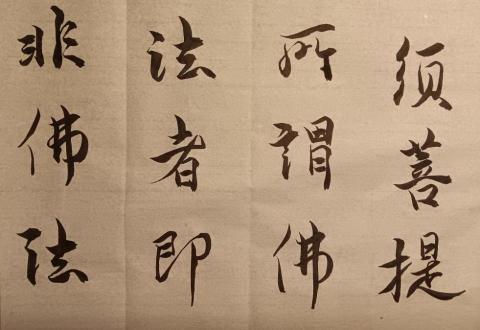 须菩提
所謂佛
法者即
非佛法